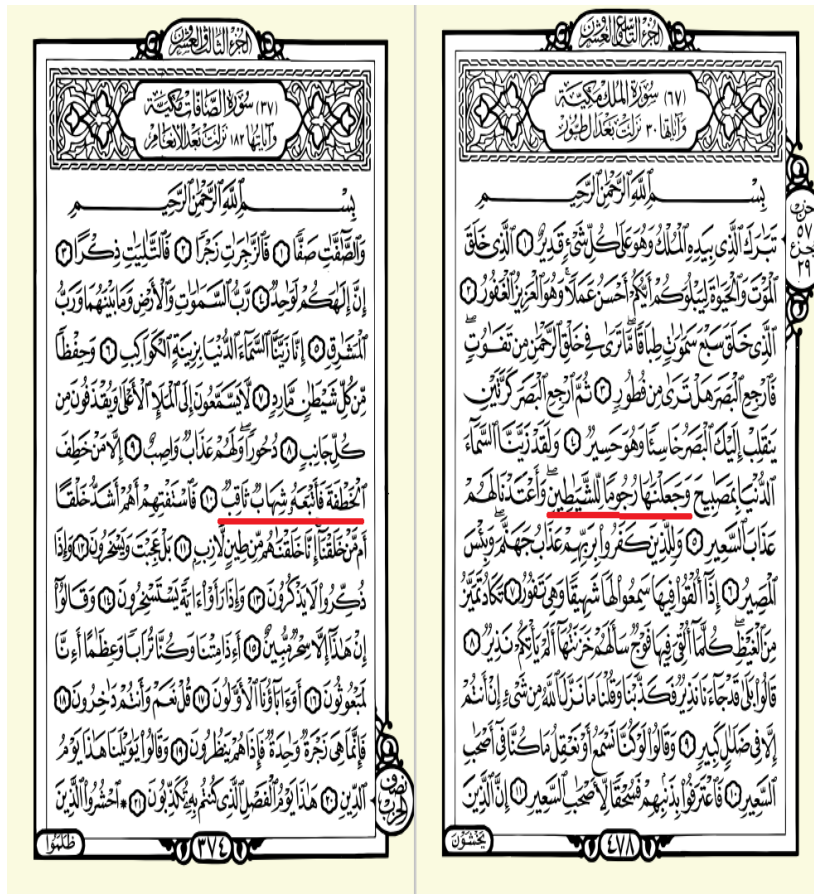 الجزء التاسع والعشرون
(٦٧) سُورَةُ المُلْكِ مَكِيَّة
وَآيَاتُهَا ٣٠ نَزَلَتْ بَعْدَ الطُّورِ
بِسْمِ ٱللَّهِ ٱلرَّحْمَٰنِ ٱلرَّحِيمِ
تَبَٰرَكَ ٱلَّذِى بِيَدِهِ ٱلْمُلْكُ وَهُوَ عَلَىٰ كُلِّ شَىْءٍ قَدِيرٌ ١ ٱلَّذِى خَلَقَ
ٱلْمَوْتَ وَٱلْحَيَوٰةَ لِيَبْلُوَكُمْ أَيُّكُمْ أَحْسَنُ عَمَلًا ۚ وَهُوَ ٱلْعَزِيزُ ٱلْغَفُورُ ٢
ٱلَّذِى خَلَقَ سَبْعَ سَمَٰوَٰتٍ طِبَاقًا ۖ مَّا تَرَىٰ فِى خَلْقِ ٱلرَّحْمَٰنِ مِن تَفَٰوُتٍ ۖ
فَٱرْجِعِ ٱلْبَصَرَ هَلْ تَرَىٰ مِن فُطُورٍ ٣ ثُمَّ ٱرْجِعِ ٱلْبَصَرَ كَرَّتَيْنِ
يَنقَلِبْ إِلَيْكَ ٱلْبَصَرُ خَاسِئًا وَهُوَ حَسِيرٌ ٤ وَلَقَدْ زَيَّنَّا ٱلسَّمَآءَ
ٱلدُّنْيَا بِمَصَٰبِيحَ وَجَعَلْنَٰهَا رُجُومًا لِّلشَّيَٰطِينِ ۖ وَأَعْتَدْنَا لَهُمْ
عَذَابَ ٱلسَّعِيرِ ٥ وَلِلَّذِينَ كَفَرُوا۟ بِرَبِّهِمْ عَذَابُ جَهَنَّمَ ۖ وَبِئْسَ
ٱلْمَصِيرُ ٦ إِذَآ أُلْقُوا۟ فِيهَا سَمِعُوا۟ لَهَا شَهِيقًا وَهِىَ تَفُورُ ٧ تَكَادُ تَمَيَّزُ
مِنَ ٱلْغَيْظِ ۖ كُلَّمَآ أُلْقِىَ فِيهَا فَوْجٌ سَأَلَهُمْ خَزَنَتُهَآ أَلَمْ يَأْتِكُمْ نَذِيرٌ ٨
قَالُوا۟ بَلَىٰ قَدْ جَآءَنَا نَذِيرٌ فَكَذَّبْنَا وَقُلْنَا مَا نَزَّلَ ٱللَّهُ مِن شَىْءٍ إِنْ أَنتُمْ
إِلَّا فِى ضَلَٰلٍ كَبِيرٍ ٩ وَقَالُوا۟ لَوْ كُنَّا نَسْمَعُ أَوْ نَعْقِلُ مَا كُنَّا فِىٓ أَصْحَٰبِ
ٱلسَّعِيرِ ١٠ فَٱعْتَرَفُوا۟ بِذَنۢبِهِمْ فَسُحْقًا لِّأَصْحَٰبِ ٱلسَّعِيرِ ١١ إِنَّ ٱلَّذِينَ
حزب
٥٧
جزء
٢٩
٤٧٨
يَخْشَوْنَ
الجزء الثالث والعشرون
(٣٧) سُورَةُ الصَّافَاتِ مَكِيَّة
وَآيَاتُهَا ١٨٢ نَزَلَتْ بَعْدَ الأَنْعَامِ
بِسْمِ ٱللَّهِ ٱلرَّحْمَٰنِ ٱلرَّحِيمِ
وَٱلصَّٰٓفَّٰتِ صَفًّا ١ فَٱلزَّٰجِرَٰتِ زَجْرًا ٢ فَٱلتَّٰلِيَٰتِ ذِكْرًا ٣
إِنَّ إِلَٰهَكُمْ لَوَٰحِدٌ ٤ رَّبُّ ٱلسَّمَٰوَٰتِ وَٱلْأَرْضِ وَمَا بَيْنَهُمَا وَرَبُّ
ٱلْمَشَٰرِقِ ٥ إِنَّا زَيَّنَّا ٱلسَّمَآءَ ٱلدُّنْيَا بِزِينَةٍ ٱلْكَوَاكِبِ ٦ وَحِفْظًا
مِّن كُلِّ شَيْطَٰنٍ مَّارِدٍ ٧ لَّا يَسَّمَّعُونَ إِلَى ٱلْمَلَإِ ٱلْأَعْلَىٰ وَيُقْذَفُونَ مِن
كُلِّ جَانِبٍ ٨ دُحُورًا ۖ وَلَهُمْ عَذَابٌ وَاصِبٌ ٩ إِلَّا مَنْ خَطِفَ
ٱلْخَطْفَةَ فَأَتْبَعَهُۥ شِهَابٌ ثَاقِبٌ ١٠ فَٱسْتَفْتِهِمْ أَهُمْ أَشَدُّ خَلْقًا
أَم مَّنْ خَلَقْنَآ ۚ إِنَّا خَلَقْنَٰهُم مِّن طِينٍ لَّازِبٍۭ ١١ بَلْ عَجِبْتَ وَيَسْخَرُونَ ١٢ وَإِذَا
ذُكِّرُوا۟ لَا يَذْكُرُونَ ١٣ وَإِذَا رَأَوْا۟ ءَايَةً يَسْتَسْخِرُونَ ١٤ وَقَالُوٓا۟
إِنْ هَٰذَآ إِلَّا سِحْرٌ مُّبِينٌ ١٥ أَءِذَا مِتْنَا وَكُنَّا تُرَابًا وَعِظَٰمًا أَءِنَّا
لَمَبْعُوثُونَ ١٦ أَوَءَابَآؤُنَا ٱلْأَوَّلُونَ ١٧ قُلْ نَعَمْ وَأَنتُمْ دَٰخِرُونَ ١٨
فَإِنَّمَا هِىَ زَجْرَةٌ وَٰحِدَةٌ فَإِذَا هُمْ يَنظُرُونَ ١٩ وَقَالُوا۟ يَٰوَيْلَنَا هَٰذَا يَوْمُ
ٱلدِّينِ ٢٠ هَٰذَا يَوْمُ ٱلْفَصْلِ ٱلَّذِى كُنتُم بِهِۦ تُكَذِّبُونَ ٢١ * ٱحْشُرُوا۟ ٱلَّذِينَ
نصف
الحزب
٣٧٤
ظَلَمُوا